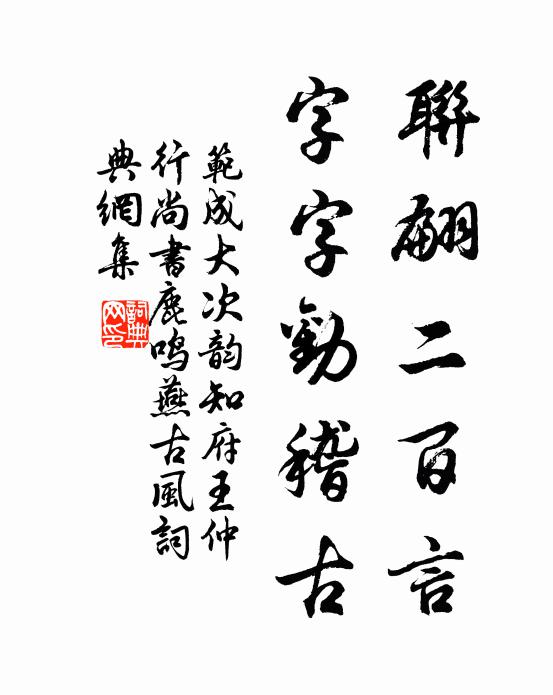 聯翩二百言
字字勸稽古
範成大次韵知府王仲
行尚書鹿鳴燕古風詞
典網集
詞典網印